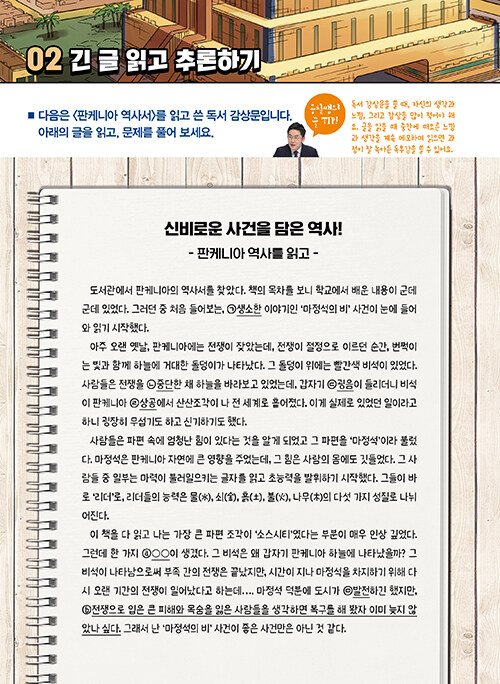 02 긴 글 읽고 추론하기
■ 다음은 <판케니아 역사서>를 읽고 쓴 독서 감상문입니다.
아래의 글을 읽고, 문제를 풀어 보세요.
웅쌤의
글 TIP!
독서 감상문을 쓸 때, 자신의 생각과
느낌, 그리고 감상을 많이 적어야 돼
요. 글을 읽을 때 중간에 떠오른 느낌
과 생각을 계속 메모하며 읽으면 과
정이 잘 녹아든 독후감을 쓸 수 있어요.
신비로운 사건을 담은 역사!
- 판케니아 역사를 읽고 -
도서관에서 판케니아의 역사서를 찾았다. 책의 목차를 보니 학교에서 배운 내용이 군데
군데 있었다. 그러던 중 처음 들어보는, ㉠생소한 이야기인 '마정석의 비' 사건이 눈에 들어
와 읽기 시작했다.
아주 오랜 옛날, 판케니아에는 전쟁이 잦았는데, 전쟁이 절정으로 이르던 순간, 번쩍이
는 빛과 함께 하늘에 거대한 돌덩이가 나타났다. 그 돌덩이 위에는 빨간색 비석이 있었다.
사람들은 전쟁을 ㉡중단한 채 하늘을 바라보고 있었는데, 갑자기 ㉢굉음이 들리더니 비석
이 판케니아 ㉣상공에서 산산조각이 나 전 세계로 흩어졌다. 이게 실제로 있었던 일이라고
하니 굉장히 무섭기도 하고 신기하기도 했다.
사람들은 파편 속에 엄청난 힘이 있다는 것을 알게 되었고 그 파편을 '마정석'이라 불렀
다. 마정석은 판케니아 자연에 큰 영향을 주었는데, 그 힘은 사람의 몸에도 깃들었다. 그 사
람들 중 일부는 마력이 불러일으키는 글자를 읽고 초능력을 발휘하기 시작했다. 그들이 바
로 '리더'로, 리더들의 능력은 물(水), 쇠(金), 흙(土), 불(火), 나무(木)의 다섯 가지 성질로 나뉘
어진다.
이 책을 다 읽고 나는 가장 큰 파편 조각이 '소스시티'였다는 부분이 매우 인상 깊었다.
그런데 한 가지 ⓐ○○이 생겼다. 그 비석은 왜 갑자기 판케니아 하늘에 나타났을까? 그
비석이 나타남으로써 부족 간의 전쟁은 끝났지만, 시간이 지나 마정석을 차지하기 위해 다
시 오랜 기간의 전쟁이 일어났다고 하는데…. 마정석 덕분에 도시가 ㉤발전하긴 했지만,
ⓑ전쟁으로 입은 큰 피해와 목숨을 잃은 사람들을 생각하면 복구를 해 봤자 이미 늦지 않
았나 싶다. 그래서 난 '마정석의 비' 사건이 좋은 사건만은 아닌 것 같다.